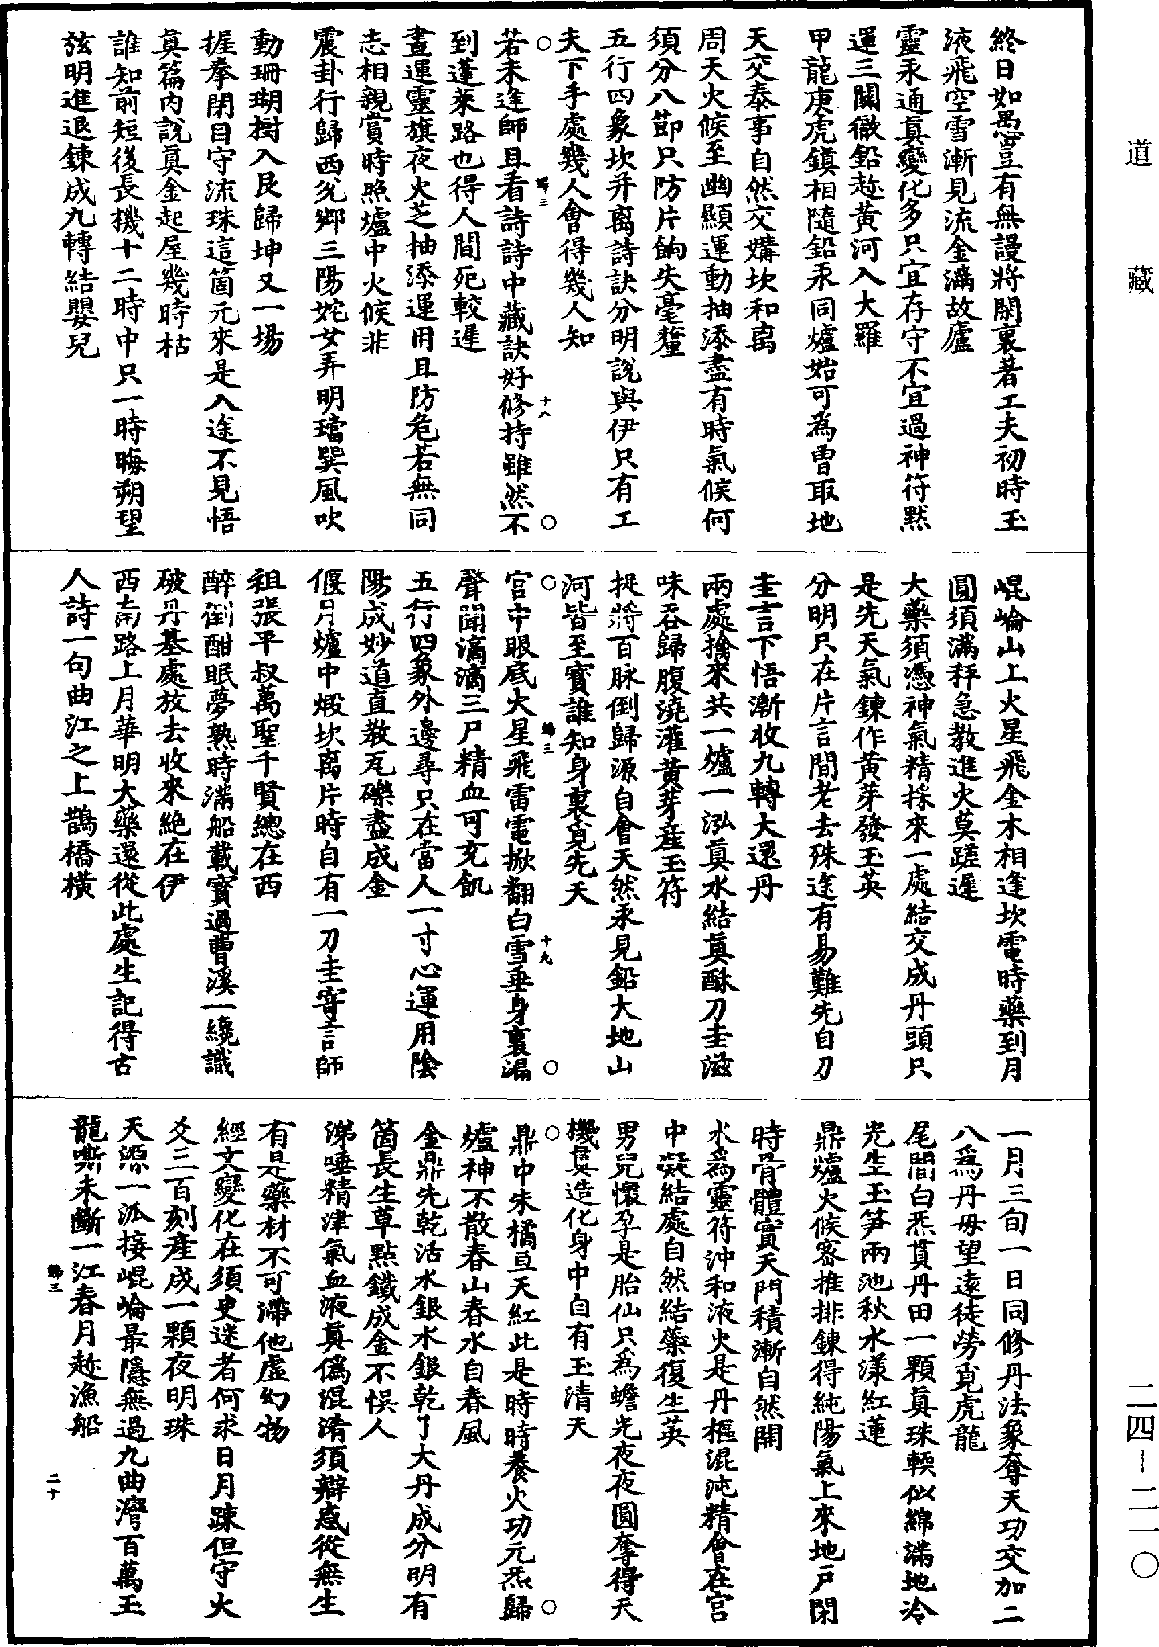 道藏
終日如愚豈有無謾將閑裏著工夫初時玉
液飛空雪漸見流金滿故廬
靈汞通真變化多只宜存守不宜過神符默
運三關徹鉛趂黃河入大羅
甲龍庚虎鎮相隨鉛汞同爐始可為曺取地
天交泰事自然交媾坎和离
周天火候至幽顯運動抽添盡有時氣候何
須分八節只防片餉失毫釐
五行四象坎并离詩訣分明說與伊只有工
夫下手處幾人會得幾人知
若未逢師且看詩詩中藏訣好修持雖然不
到蓬萊路也得人間死較遲
晝運靈旗夜火芝抽添運用且防危若無同
志相親賞時照爐中火候非
震卦行歸西兊鄉三陽姹女弄明璫巽風吹
動珊瑚樹入艮歸坤又一場
握拳閉目守流珠這箇元來是入途不見悟
真篇內說真金起屋幾時枯
誰知前短後長機十二時中只一時晦朔望
弦明進退鍊成九轉結嬰兒
崐崘山上火星飛金木相逢坎電時藥到月
圓須滿秤急教進火莫蹉遲
大藥須憑神氣精採來一處結交成丹頭只
是先天氣鍊作黃芽發玉英
分明只在片言間老去殊途有易難先自刀
圭言下悟漸收九轉大還丹
兩處擒來共一爐一泓真水結真酥刀圭滋
味吞歸腹澆灌黃芽産玉符
捉將百脉倒歸源自會天然汞見鉛大地山
河皆至寶誰知身裏覓先天
官中眼底大星飛雷電掀翻白雪垂身裏漏
聲聞滴滴三尸精血可充飢
五行四象外邊尋只在當人一寸心運用陰
陽成妙道直教瓦礫盡成金
偃月爐中煅坎离片時自有一刀圭寄言師
祖張平叔萬聖千賢總在西
醉倒酣眠夢熟時滿船載寶過曹溪一纔識
破丹基處放去收來絶在伊
西南路上月華明大藥還從此處生記得古
人詩一句曲江之上鵲橋橫
一月三旬一日同修丹法象奪天功交加二
八為丹母望遠徒勞覓虎龍
尾閭白炁貫丹田一顆真珠輭似綿滿地冷
光生玉笋兩池秋水漾紅蓮
鼎爐火候密推排鍊得純陽氣上來地戶閉
時骨體實天門積漸自然開
水為靈符沖和液火是丹樞混沌精會在宮
中凝結處自然結蘂復生英
男兒懷孕是胎仙只為蟾光夜夜圓奪得天
機真造化身中自有玉清天
鼎中朱橘亘天紅此是時時養火功元炁歸
爐神不散春山春水自春風
金鼎先乾活水銀水銀乾了大丹成分明有
箇長生草點鐵成金不悞人
涕唾精津氣血液真僞混淆須辯惑從無生
有是藥材不可滯他虛幻物
經文變化在須臾迷者何求日月踈但守火
爻三百刻産成一顆夜明珠
天源一派接崐崘最隱無過九曲灣百萬玉
龍嘶未斷一江春月趂漁船
二四－二一〇